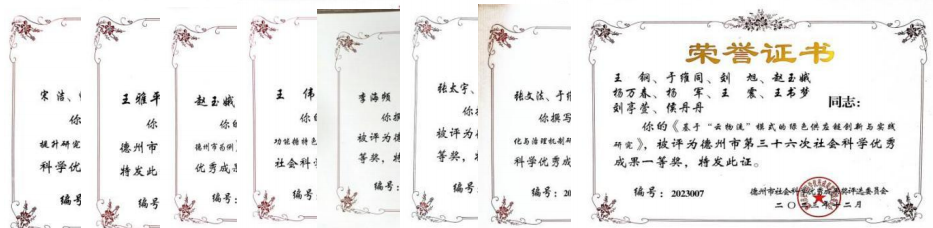 宋洁、
提升研究
科学优
编号
王雅平
你
德州市
特发此
编号
赵玉娥
你的
德州市为例
优秀成
编号
王 伟
你
功能特特色
社会科学
编号
李海频
你撰
被评为德
等奖，特
编号：
张太宇、
你
被评为
等奖，
编号：
张文法、于
你撰写
化与治理机制研
科学优秀成
编号：20
荣誉证书
王 钢、于维同、刘 旭、赵玉娥
杨万春、杨 军、王 震、王书梦
刘亭莹、侯丹丹 同志：
你的《基于“云物流”模式的绿色供应链创新与实践
研究》，被评为德州市第三十六次社会科学优秀
成果一等奖，特发此证。
编号：2023007 德州市社会科学优秀成果奖评选委员会
二〇二三年十二月